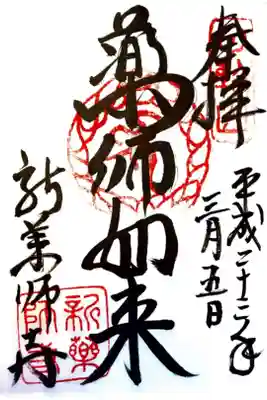 奉拝
平成二十二年
三月五日
薬師如来
新薬師寺
新薬
師寺